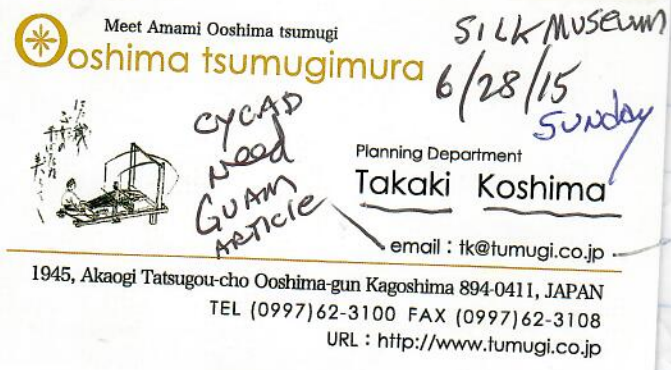 Meet Amami Ooshima tsumugi
Ooshima tsumugimura
SILK MUSEUM
6/28/15
SUNDAY
CYCAD
Need
GUAM
ARTICLE
Planning Department
Takaki Koshima
email : tk@tumugi.co.jp
1945, Akaogi Tatsugou-cho Ooshima-gun Kagoshima 894-0411, JAPAN
TEL (0997)62-3100 FAX (0997)62-3108
URL : http://www.tumugi.co.jp